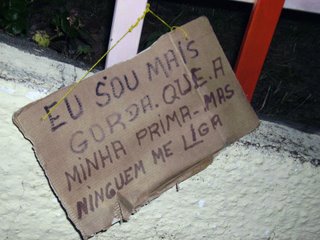 EU SOU MAIS
GORDA. QUE. A
MINHA PRIMA- MAS
NINGUEM ME LIGA